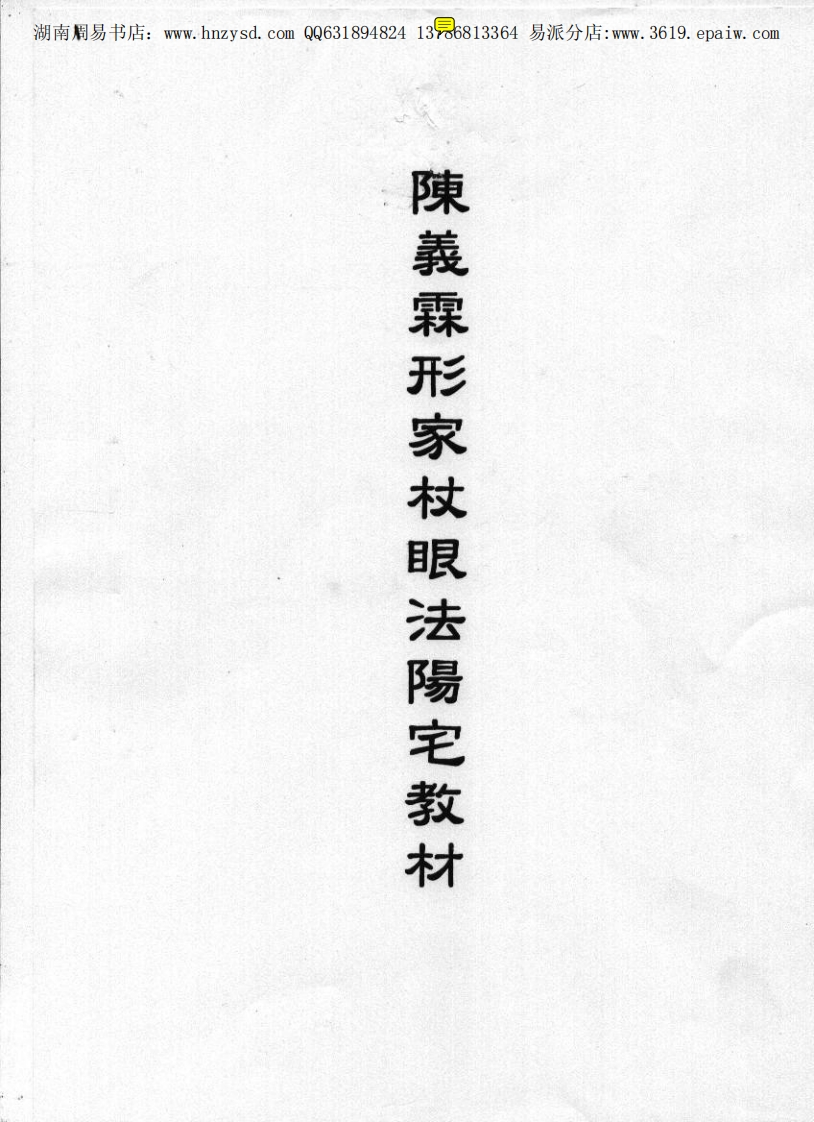 湖南周易书店：www.hnzysd.com QQ631894824 13786813364 易派分店:www.3619.epaiw.com
陳義霖形家杖眼法陽宅教材